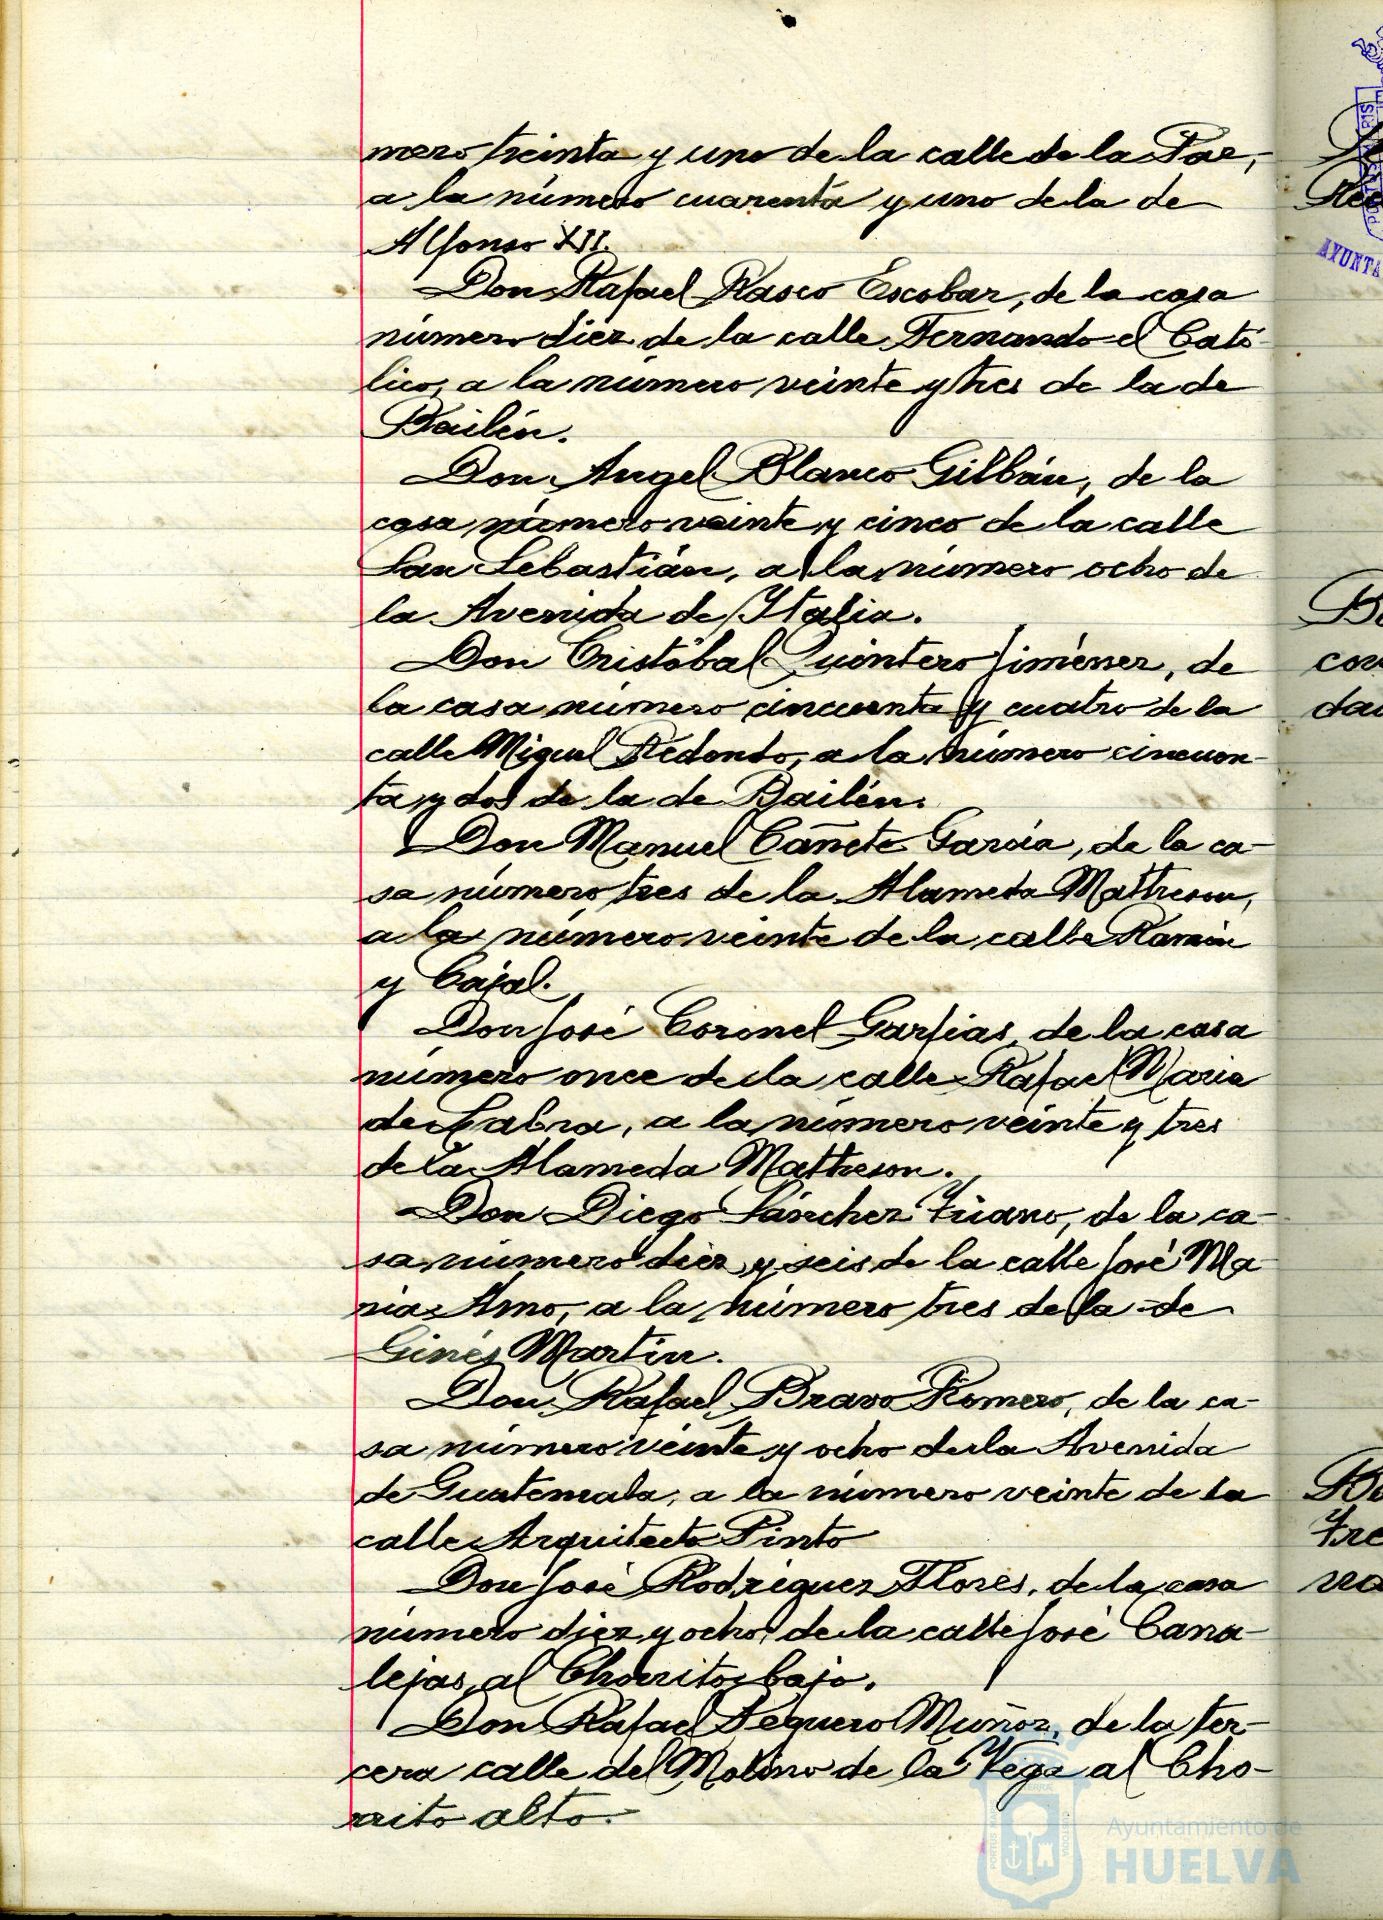 mero treinta y uno de la calle de la Paz,
a la número cuarenta y uno de la de
Alfonso XII.
Don Rafael Rasco Escobar, de la casa
número diez de la calle Fernando el Cató-
lico, a la número veinte y tres de la de
Bailén.
Don Angel Blanco Gilbán, de la
casa número veinte y cinco de la calle
San Sebastián, a la número ocho de
la Avenida de Italia.
Don Cristóbal Quintero Jiménez, de
la casa número cincuenta y cuatro de la
calle Miguel Redondo, a la número cincuen-
ta y dos de la de Bailén.
Don Manuel Cañete García, de la ca-
sa número tres de la Alameda Mattheson,
a la número veinte de la calle Ramón
y Cajal.
Don José Coronel Garfias, de la casa
número once de la calle Rafael María
de Labra, a la número veinte y tres
de la Alameda Mattheson.
Don Diego Sánchez, de la ca-
sa número diez y seis de la calle José Ma
ria Amo, a la número tres de la de
Ginés Martin.
Don Rafael Bravo Romero, de la ca-
sa número veinte y ocho de la Avenida
de Guatemala, a la número veinte de la
calle Arquitecto Pinto
Don José Rodríguez Flores, de la casa
número diez y ocho de la calle José Cana-
lejas, al Chorrito bajo.
Don Rafael Pequero Muñoz, de la ter-
cera calle del Molino de la Vega al Cho-
rrito alto.
AYUNTA
Ayuntamiento de
HUELVA